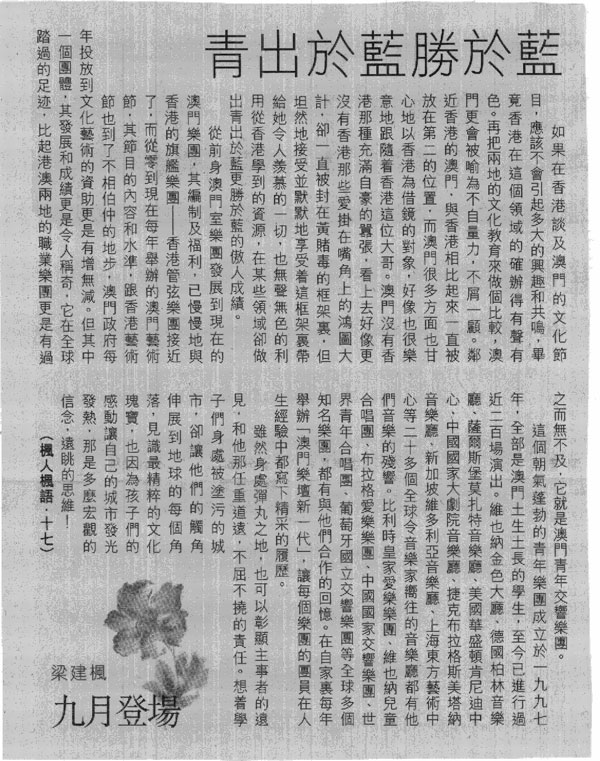 青出於藍勝於藍
如果在香港談及澳門的文化節
目，應該不會引起多大的興趣和共鳴，畢
竟香港在這個領域的確辦得有聲有
色。再把兩地的文化教育來做個比較，澳
門更會被喻為不自量力，不屑一顧。鄰
近香港的澳門，與香港相比起來一直被
放在第二的位置，而澳門很多方面也甘
心地以香港為借鏡的對象，好像也很樂
意地跟隨着香港這位大哥。澳門沒有香
港那種充滿自豪的囂張，看上去好像更
沒有香港那些愛掛在嘴角上的鴻圖大
計，卻一直被封在黃賭毒的框架裏，但
坦然地接受並默默地享受着這框架裏帶
給她令人羨慕的一切，也無聲無色的利
用從香港學到的資源，在某些領域卻做
出青出於藍更勝於藍的傲人成績。
從前身澳門室樂團發展到現在的
澳門樂團，其編制及福利，已慢慢地與
香港的旗艦樂團——香港管弦樂團接近
了，而從零到現在每年舉辦的澳門藝術
節，其節目的內容和水準，跟香港藝術
節也到了不相伯仲的地步，澳門政府每
年投放到文化藝術的資助更是有增無減。但其中
一個團體，其發展和成績更是令人稱奇，它在全球
踏過的足迹，比起港澳兩地的職業樂團更是有過
之而無不及，它就是澳門青年交響樂團。
這個朝氣蓬勃的青年樂團成立於一九九七
年，全部是澳門土生土長的學生，至今已進行過
近二百場演出。維也納金色大廳、德國柏林音樂
廳、薩爾斯堡莫扎特音樂廳、美國華盛頓肯尼迪中
心、中國國家大劇院音樂廳、捷克布拉格斯美塔納
音樂廳、新加坡維多利亞音樂廳、上海東方藝術中
心等二十多個全球令音樂家嚮往的音樂廳都有他
們音樂的殘響。比利時皇家愛樂樂團、維也納兒童
合唱團、布拉格愛樂樂團、中國國家交響樂團、世
界青年合唱團、葡萄牙國立交響樂團等全球多個
知名樂團，都有與他們合作的回憶。在自家裏每年
舉辦「澳門樂壇新一代」，讓每個樂團的團員在人
生經驗中都寫下精采的履歷。
雖然身處彈丸之地，也可以彰顯主事者的遠
見，和他那任重道遠，不屈不撓的責任。想着學
子們身處被塗污的城
市，卻讓他們的觸角
伸展到地球的每個角
落，見識最精粹的文化
瑰寶，也因為孩子們的
感動讓自己的城市發光
發熱，那是多麼宏觀的
信念，遠眺的思維！
（楓人楓語．十七）
梁建楓
九月登場